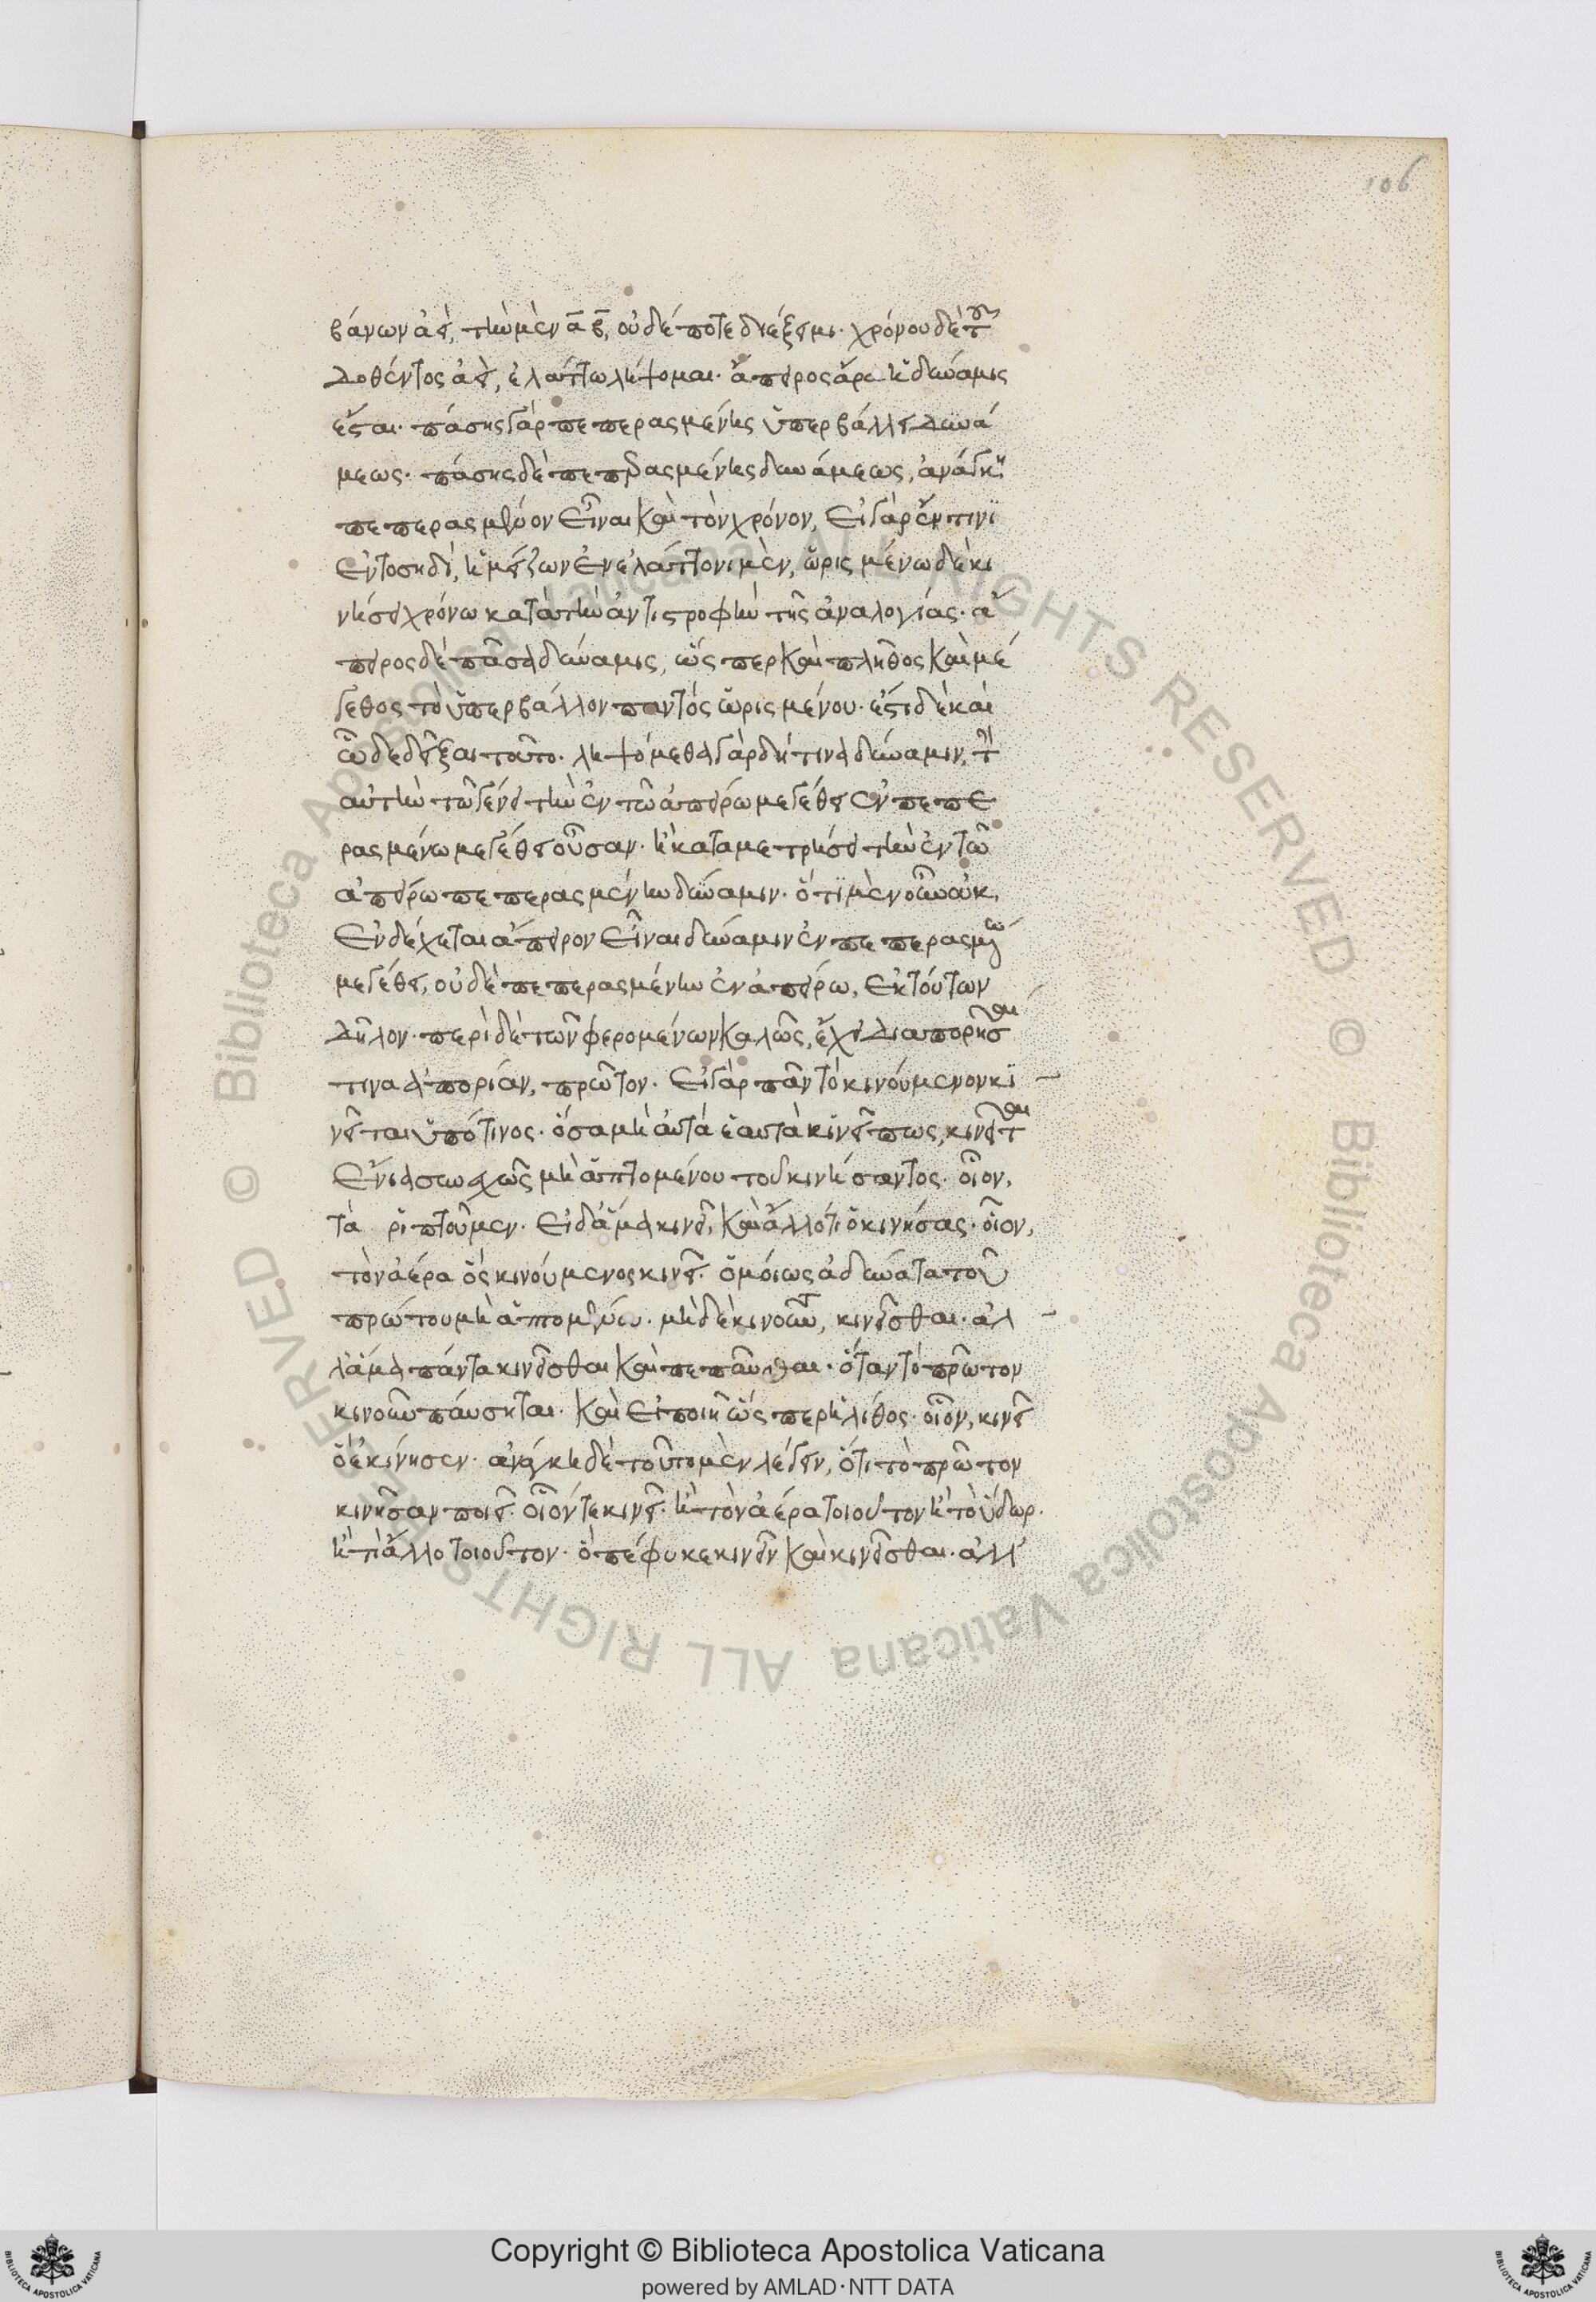 106
βάνων ἀεὶ, τὴν μὲν α̅ β̅, οὐδέ ποτε διέξειμι· χρόνου δὲ τοῦ
δοθέντος ἀεὶ, ἐλάττω λήψομαι. ἄπειρος ἄρα ἡ δύναμις
ἔσται· πάσης γὰρ πεπερασμένης ὑπερβάλλει δυνά
μεως. πάσης δὲ πεπερασμένης δυνάμεως, ἀνάγκη
πεπερασμένον εἶναι καὶ τὸν χρόνον, εἰ γὰρ ἔν τινι
ἡ τοσηδὶ, ἡ μείζων ἐν ἐλάττονι μὲν, ὡρισμένω δὲ κι
νήσει χρόνω κατὰ τὴν ἀντιστροφὴν τῆς ἀναλογίας. ἄ
πειρος δὲ πᾶσα δύναμις, ὥσπερ καὶ πλῆθος καὶ μέ
γεθος τὸ ὑπερβάλλον παντὸς ὡρισμένου. ἔστι δὲ καὶ
ὧδε δεῖξαι τοῦτο. ληψόμεθα γὰρ δή τινα δύναμιν, τὴν
αὐτὴν τῶ γένει τὴν ἐν τῶ ἀπείρω μεγέθει ἐν πεπε
ρασμένω μεγέθει οὖσαν. ἣ καταμετρήσει τὴν ἐν τῶ
ἀπείρω πεπερασμένην δύναμιν. ὅτι μὲν οὖν οὐκ
ἐνδέχεται ἄπειρον εἶναι δύναμιν ἐν πεπερασμένω
μεγέθει, οὐδὲ πεπερασμένην ἐν ἀπείρω, ἐκ τούτων
δῆλον. περὶ δὲ τῶν φερομένων καλῶς ἔχει διαπορῆσαι
τινα ἀπορίαν, πρῶτον. εἰ γὰρ πᾶν τὸ κινούμενον κι
νεῖται ὑπό τινος. ὅσα μὴ αὐτὰ ἑαυτὰ κινεῖ πως, κινεῖται
ἔνια συνεχῶς μὴ ἁπτομένου τοῦ κινήσαντος. οἷον,
τὰ ῥιπτούμεν. εἰ δ' ἅμα κινεῖ, καὶ ἄλλό τι ὁ κινήσας. οἷον,
τὸν ἀέρα ὃς κινούμενος κινεῖ. ὁμοίως ἀδύνατα τοῦ
πρώτου μὴ ἁπτομένου. μὴ δὲ κινοῦντ, κινεῖσθαι. ἀλ
λ' ἅμα πάντα κινεῖσθαι καὶ πεπαῦσθαι. ὅταν τὸ πρῶτον
κινοῦν παύσηται. καὶ εἰ ποιῆ ὥσπερ ἡ λίθος. οἷον, κινεῖ
ὃ ἐκίνησεν. ἀνάγκη δὲ τοῦτο μὲν λέγειν, ὅτι τὸ πρῶτον
κινῆσαν ποιεῖ. οἷόν τε κινεῖ. ἢ τὸν ἀέρα τοιοῦτον ἢ τὸ ὕδωρ.
ἤ τι ἄλλο τοιοῦτον. ὃ πέφυκε κινεῖν καὶ κινεῖσθαι. ἀλλ'
© Biblioteca Apostolica Vaticana ALL RIGHTS RESERVED
© Biblioteca Apostolica Vaticana ALL RIGHTS RESERVED
Copyright © Biblioteca Apostolica Vaticana
powered by AMLAD·NTT DATA